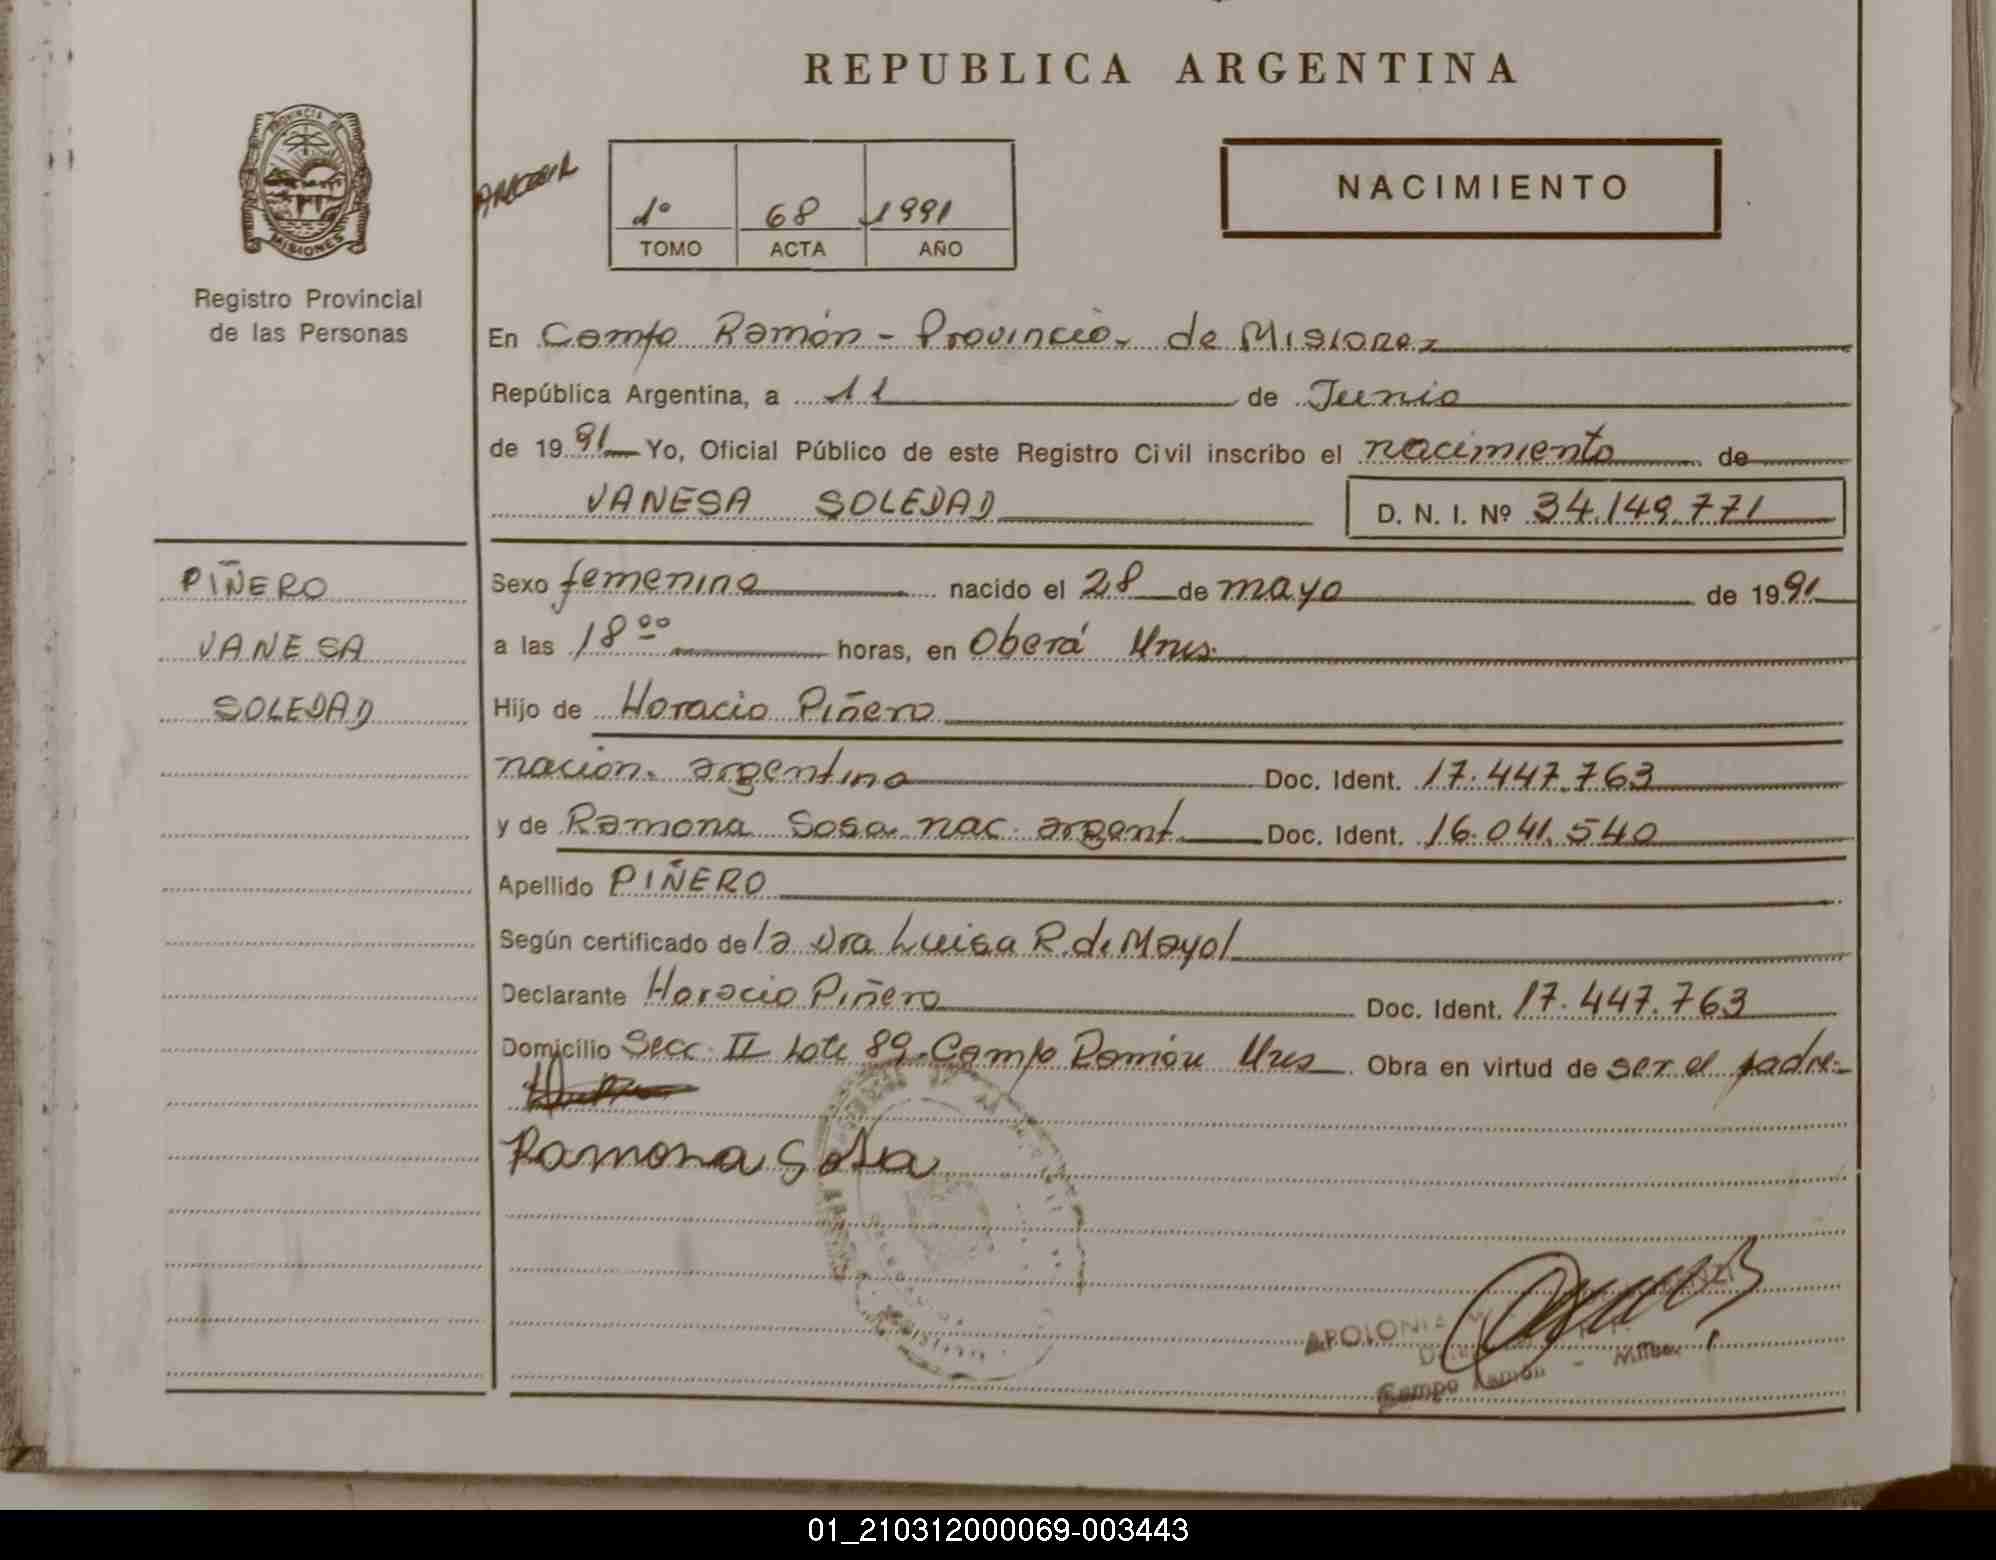 REPUBLICA ARGENTINA
PROVINCIA DE
MISIONES
Registro Provincial
de las Personas
1º 68 1991
TOMO ACTA AÑO
NACIMIENTO
En Campo Ramón - Provincia de Misiones
República Argentina, a 11 de Junio
de 1991 Yo, Oficial Público de este Registro Civil inscribo el nacimiento de
VANESA SOLEDAD
D. N. I. Nº 34.149.771
PIÑERO
VANESA
SOLEDAD
Sexo femenino nacido el 28 de mayo de 1991
a las 18 ºº horas, en Oberá Mnes.
Hijo de Horacio Piñero
nacion. argentina Doc. Ident. 17.447.763
y de Ramona Sosa nac. argent. Doc. Ident. 16.041.540
Apellido PIÑERO
Según certificado de la Dra Luisa R. de Mayol
Declarante Horacio Piñero Doc. Ident. 17.447.763
Domicilio Secc. II Lote 89-Campo Ramón Mnes Obra en virtud de ser el padre.
Ramona Sosa
APOLONIA
Campo Ramón -
01_210312000069-003443